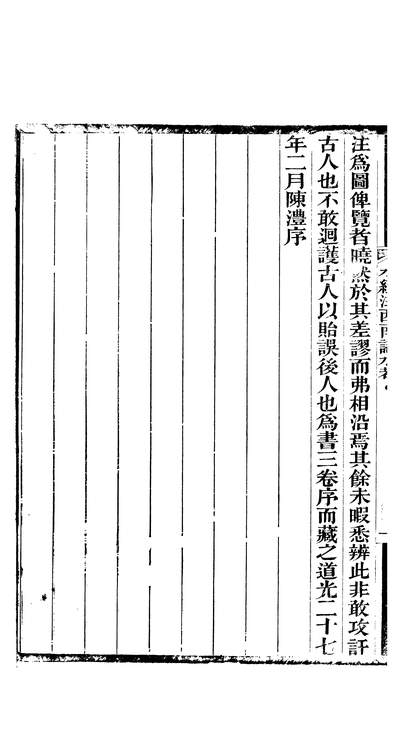 注爲圖俾覽者曉然於其差謬而弗相沿焉其餘未暇悉辨此非敢攻訐
古人也不敢迴護古人以貽誤後人也爲書三卷序而藏之道光二十七
年二月陳澧序